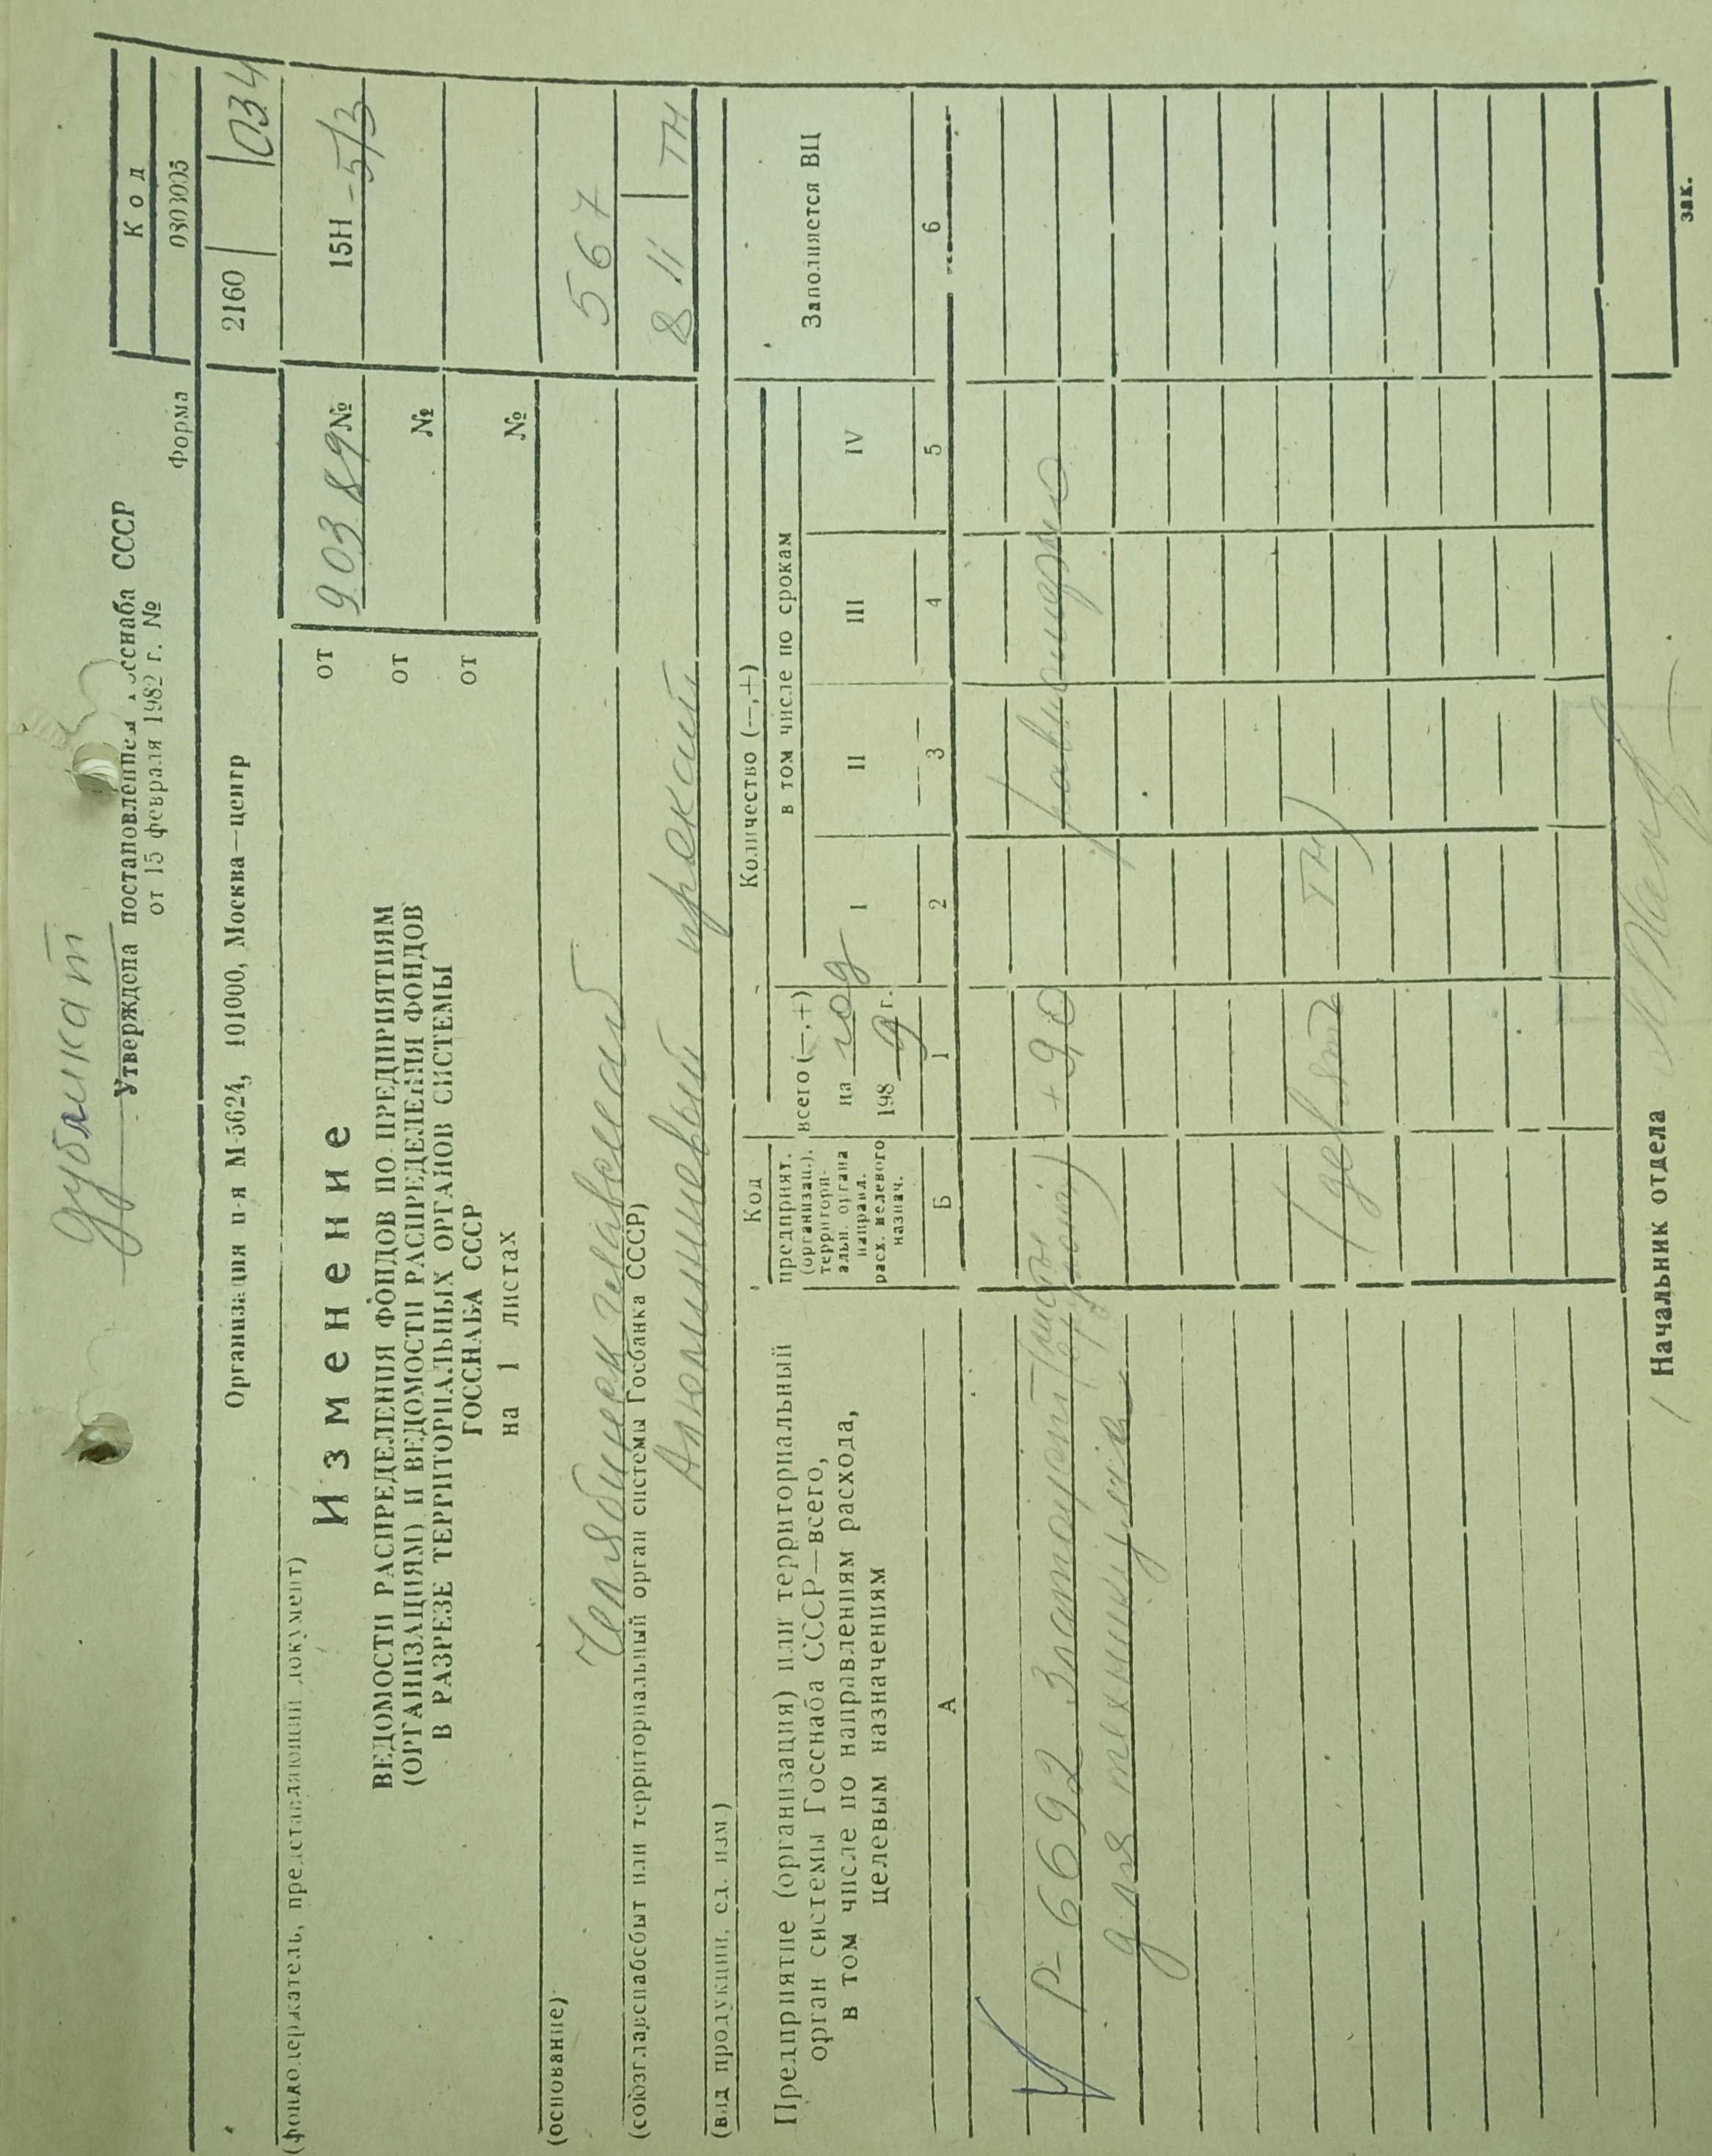 дубликат
Утверждена постановлением Госснаба СССР
от 15 февраля 1982 г. №
Код
Форма 0303005
Организация п-я М-5624, 101000, Москва—центр
2160 034
(фондодержатель, представляющий документ)
Изменение
от 903 89 № 15Н -5/3
ВЕДОМОСТИ РАСПРЕДЕЛЕНИЯ ФОНДОВ ПО ПРЕДПРИЯТИЯМ
(ОРГАНИЗАЦИЯМ) И ВЕДОМОСТИ РАСПРЕДЕЛЕНИЯ ФОНДОВ
от №
В РАЗРЕЗЕ ТЕРРИТОРИАЛЬНЫХ ОРГАНОВ СИСТЕМЫ
ГОССНАБА СССР
от №
на 1 листах
(основание)
Челябинскглавснаб 567
(союзглавснабсбыт или территориальный орган системы Госбанка СССР)
Алюминиевый прокат 8 11 ТН
(вид продукции, ед. изм.)
Предприятие (организация) или территориальный
орган системы Госснаба СССР—всего,
в том числе по направлениям расхода,
целевым назначениям
Код
предприят.
(организац.),
территори-
альн. органа
направл.
расх. целевого
назнач.
Количество (—,+)
всего (—,+)
на год
198 9 г.
в том числе по срокам
I II III IV
Заполняется ВЦ
А Б 1 2 3 4 5 6
Р-6692 Златоуст (листы +90 равномерно
для техникума
(девяносто ТН)
Начальник отдела
зак.